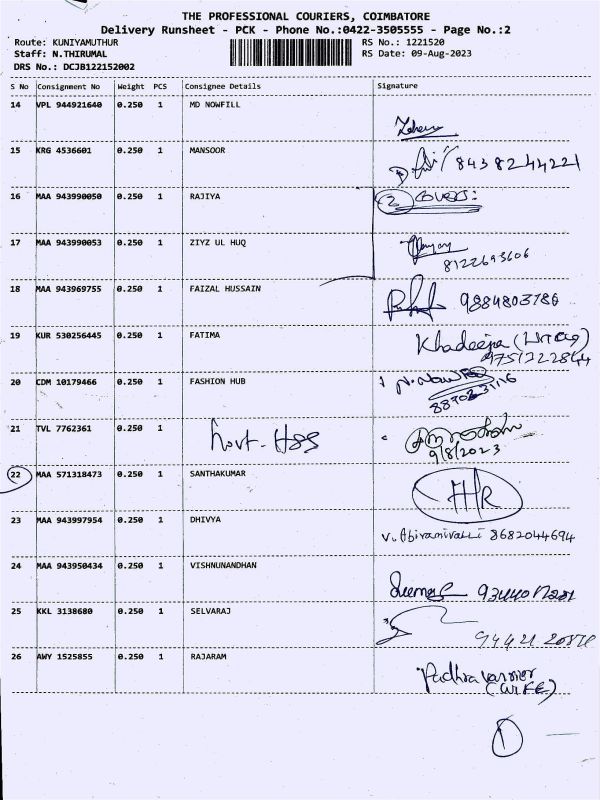 THE PROFESSIONAL COURIERS, COIMBATORE
Delivery Runsheet - PCK - Phone No.:0422-3505555 - Page No.:2
Route: KUNIYAMUTHUR RS No.: 1221520
Staff: N.THIRUMAL RS Date: 09-Aug-2023
DRS No.: DCJB122152002
S No Consignment No Weight PCS Consignee Details Signature
14 VPL 944921640 0.250 1 MD NOWFILL
15 KRG 4536601 0.250 1 MANSOOR
8438244221
16 MAA 943990050 0.250 1 RAJIYA
2
17 MAA 943990053 0.250 1 ZIYZ UL HUQ
8122693606
18 MAA 943969755 0.250 1 FAIZAL HUSSAIN
9884803786
19 KUR 530256445 0.250 1 FATIMA
Khadeeja
20 CDM 10179466 0.250 1 FASHION HUB
21 TVL 7762361 0.250 1
Govt-HSS
9/8/2023
22 MAA 571318473 0.250 1 SANTHAKUMAR
HR
23 MAA 943997954 0.250 1 DHIVYA
V. Abiramivalli 8682044694
24 MAA 943950434 0.250 1 VISHNUNANDHAN
25 KKL 3138680 0.250 1 SELVARAJ
26 AWY 1525855 0.250 1 RAJARAM
(WIFE)